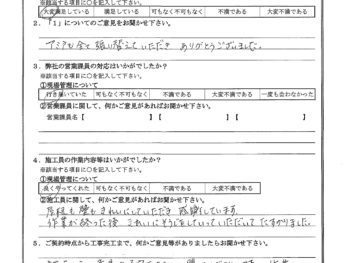 ※該当する項目に○を記入して下さい。
大変満足している 満足している 可もなく不可もなく 不満である 大変不満である
2．「1」についてのご意見をお聞かせ下さい。
全て張り替えていただき ありがとうございました。
3．弊社の営業課員の対応はいかがでしたか？
※該当する項目に○を記入して下さい。
①現場管理について
行き届いていた 可もなく不可もなく 不満である 大変不満である 一度も会わなかった
②営業課員に関して、何かご意見があればお聞かせ下さい。
営業課員名【 】【 】【 】
4．施工員の作業内容等はいかがでしたか？
※該当する項目に○を記入して下さい。
①現場管理について
良くやってくれた 可もなく不可もなく 不満である 大変不満である
②施工員に関して、何かご意見があればお聞かせ下さい。
屋根も壁もきれいにしていただき 感謝しています
作業が終った後 きれいにそうじをしていっていただいて たすかりました。
5．ご契約時点から工事完工まで、何かご意見等がありましたらお聞かせ下さい。